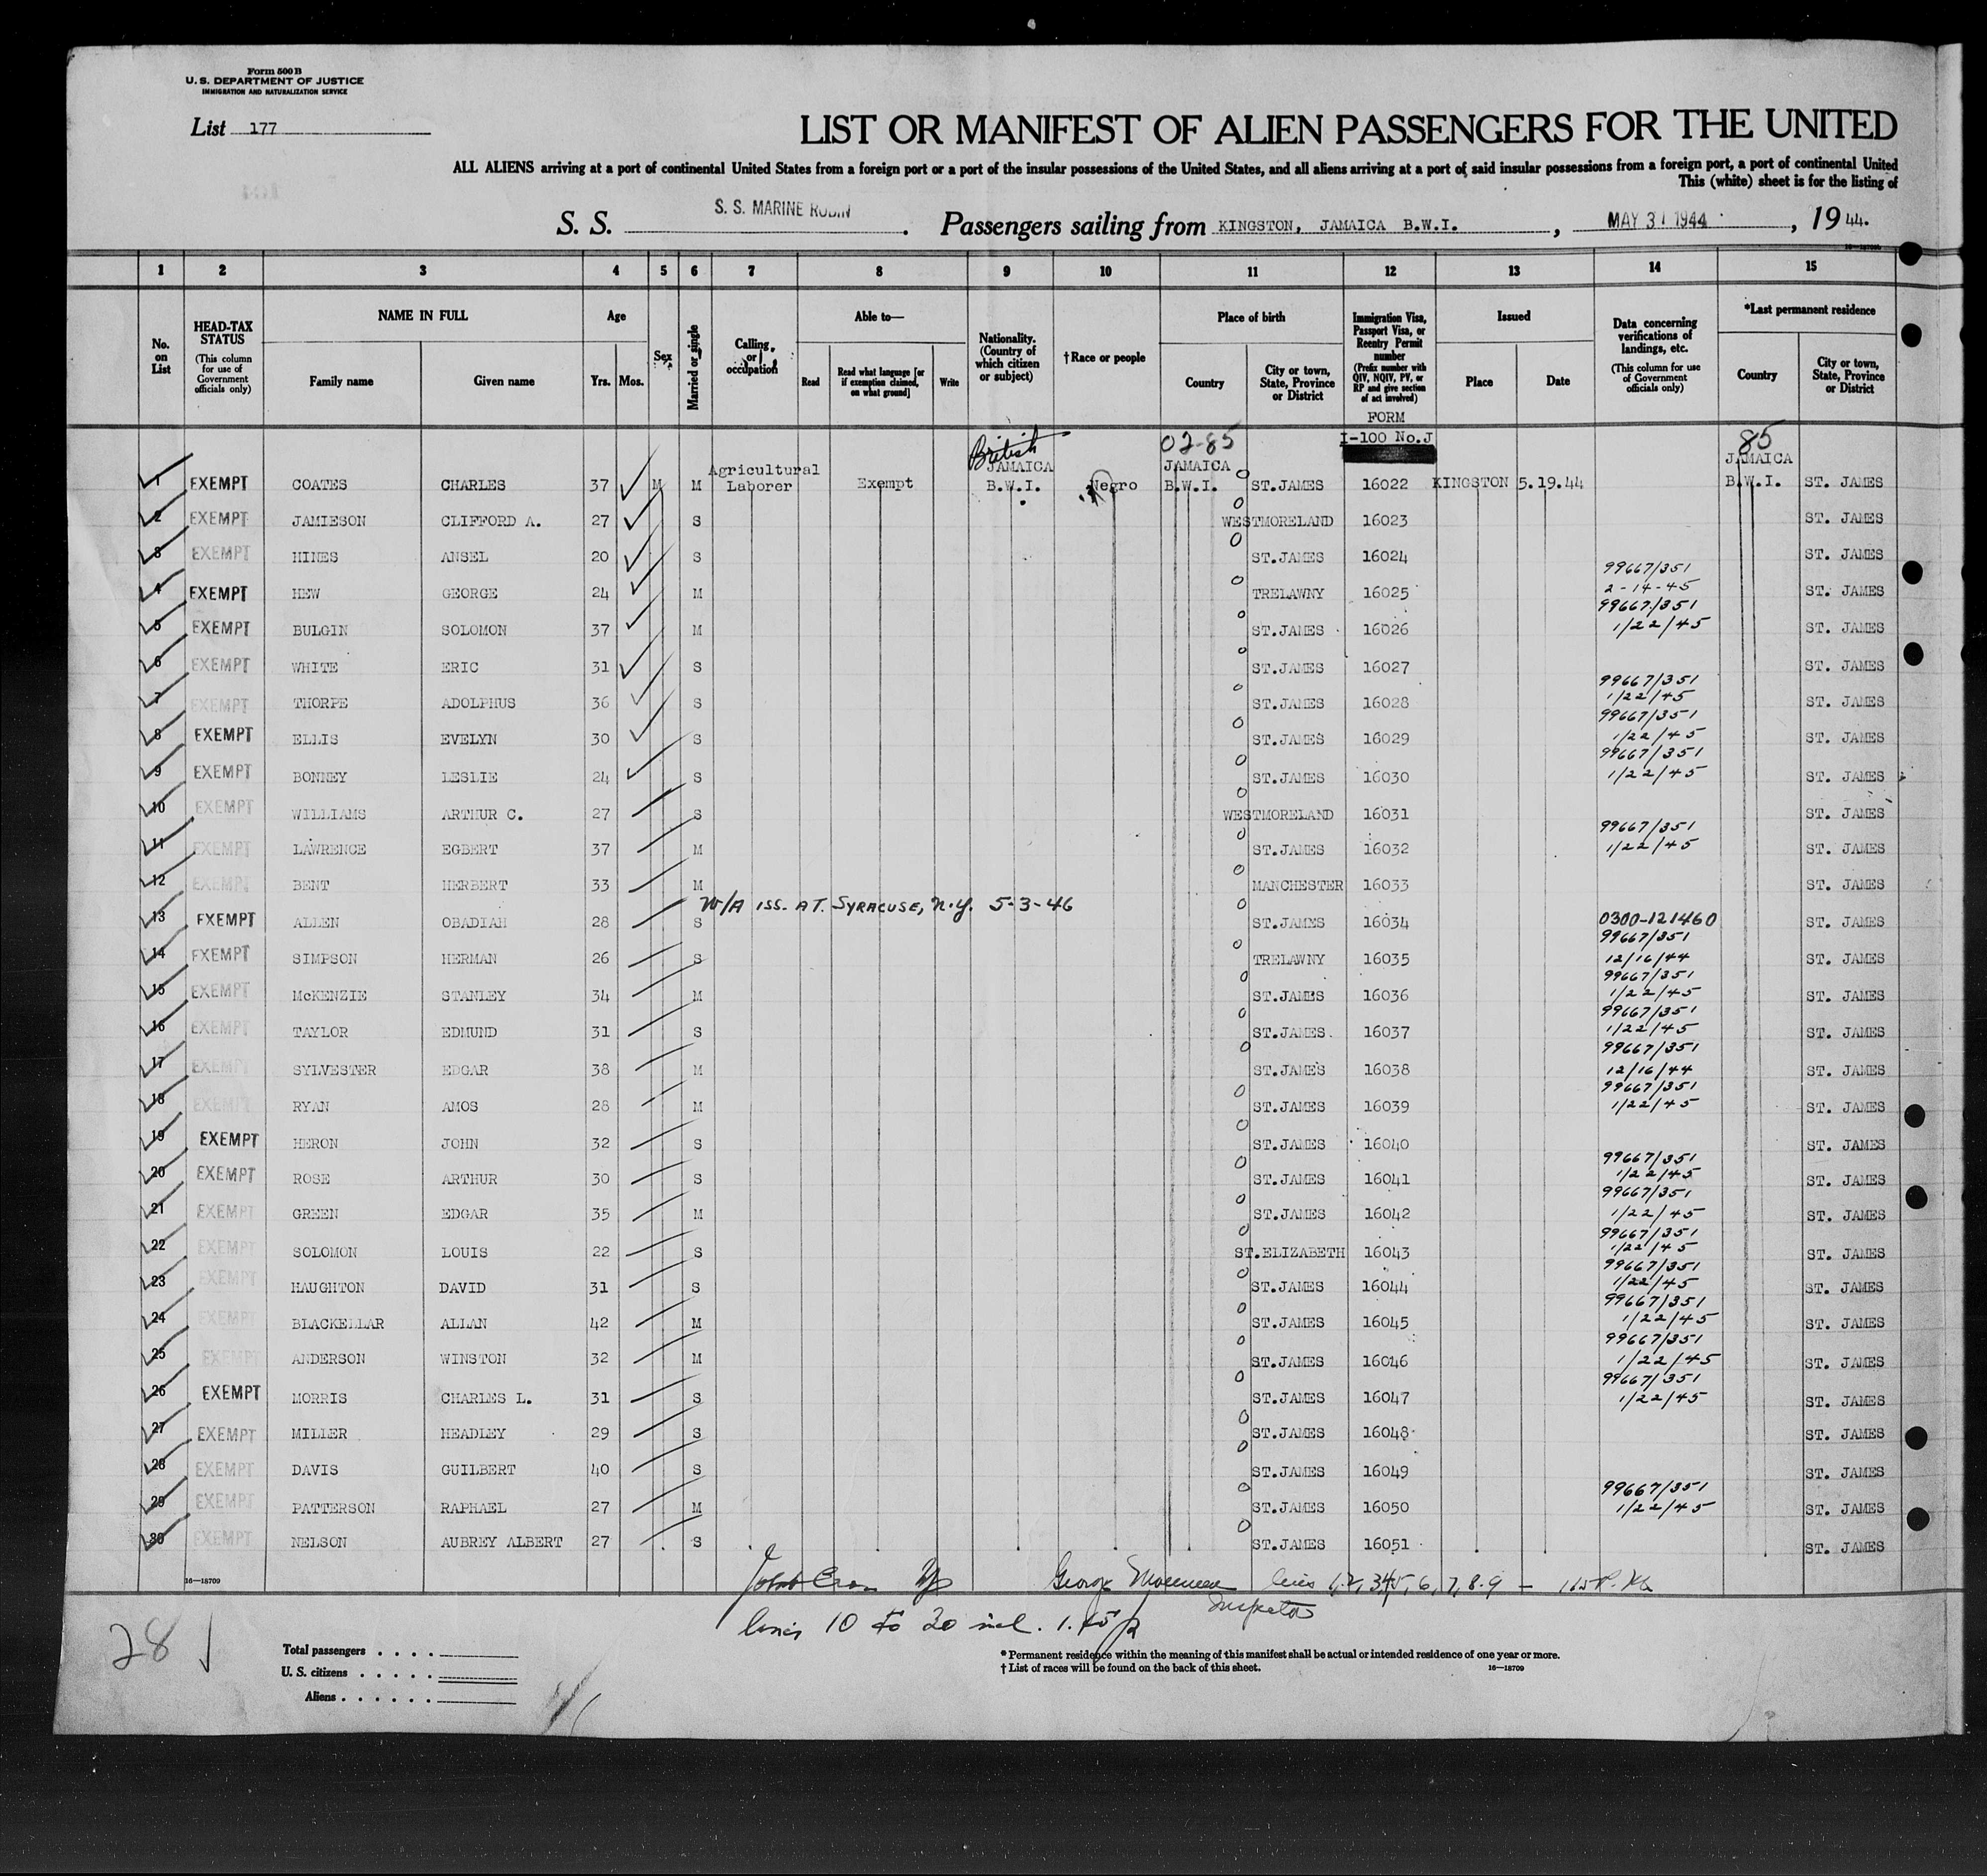 Form 500 B
U. S. DEPARTMENT OF JUSTICE
IMMIGRATION AND NATURALIZATION SERVICE
List 177
LIST OR MANIFEST OF ALIEN PASSENGERS FOR THE UNITED
ALL ALIENS arriving at a port of continental United States from a foreign port or a port of the insular possessions of the United States, and all aliens arriving at a port of said insular possessions from a foreign port, a port of continental United
This (white) sheet is for the listing of
S. S. S. S. MARINE ROBIN . Passengers sailing from KINGSTON, JAMAICA B.W.I. , MAY 31 1944 , 19 44.
1 2 3 4 5 6 7 8 9 10 11 12 13 14 15
No. on List
HEAD-TAX STATUS (This column for use of Government officials only)
NAME IN FULL Family name Given name
Age Yrs. Mos.
Sex
Married or single
Calling or occupation
Able to— Read Read what language [or if exemption claimed, on what ground] Write
Nationality. (Country of which citizen or subject)
†Race or people
Place of birth Country City or town, State, Province or District
Immigration Visa, Passport Visa, or Reentry Permit number (Prefix number with QIV, NQIV, PV, or RP and give section of act involved)
Issued Place Date
Data concerning verifications of landings, etc. (This column for use of Government officials only)
*Last permanent residence Country City or town, State, Province or District
FORM
British 02-85 I-100 No.J 85
Agricultural JAMAICA JAMAICA JAMAICA
1 EXEMPT COATES CHARLES 37 M M Laborer Exempt B.W.I. Negro B.W.I. ST.JAMES 16022 KINGSTON 5.19.44 B.W.I. ST. JAMES
2 EXEMPT JAMIESON CLIFFORD A. 27 S WESTMORELAND 16023 ST. JAMES
3 EXEMPT HINES ANSEL 20 S ST.JAMES 16024 ST. JAMES
99667/351
4 EXEMPT HEW GEORGE 24 M TRELAWNY 16025 2-14-45 ST. JAMES
99667/351
5 EXEMPT BULGIN SOLOMON 37 M ST.JAMES 16026 1/22/45 ST. JAMES
6 EXEMPT WHITE ERIC 31 S ST.JAMES 16027 ST. JAMES
99667/351
7 EXEMPT THORPE ADOLPHUS 36 S ST.JAMES 16028 1/22/45 ST. JAMES
99667/351
8 EXEMPT ELLIS EVELYN 30 S ST.JAMES 16029 1/22/45 ST. JAMES
99667/351
9 EXEMPT BONNEY LESLIE 24 S ST.JAMES 16030 1/22/45 ST. JAMES
10 EXEMPT WILLIAMS ARTHUR C. 27 S WESTMORELAND 16031 ST. JAMES
99667/351
11 EXEMPT LAWRENCE EGBERT 37 M ST.JAMES 16032 1/22/45 ST. JAMES
12 EXEMPT BENT HERBERT 33 M MANCHESTER 16033 ST. JAMES
W/A ISS. AT. SYRACUSE, N.Y. 5-3-46
13 EXEMPT ALLEN OBADIAH 28 S ST.JAMES 16034 0300-121460 ST. JAMES
99667/351
14 EXEMPT SIMPSON HERMAN 26 S TRELAWNY 16035 12/16/44 ST. JAMES
99667/351
15 EXEMPT McKENZIE STANLEY 34 M ST.JAMES 16036 1/22/45 ST. JAMES
99667/351
16 EXEMPT TAYLOR EDMUND 31 S ST.JAMES. 16037 1/22/45 ST. JAMES
99667/351
17 EXEMPT SYLVESTER EDGAR 38 M ST.JAMES 16038 12/16/44 ST. JAMES
99667/351
18 EXEMPT RYAN AMOS 28 M ST.JAMES 16039 1/22/45 ST. JAMES
19 EXEMPT HERON JOHN 32 S ST.JAMES 16040 ST. JAMES
99667/351
20 EXEMPT ROSE ARTHUR 30 S ST.JAMES 16041 1/22/45 ST. JAMES
99667/351
21 EXEMPT GREEN EDGAR 35 M ST.JAMES 16042 1/22/45 ST. JAMES
99667/351
22 EXEMPT SOLOMON LOUIS 22 S ST.ELIZABETH 16043 1/22/45 ST. JAMES
99667/351
23 EXEMPT HAUGHTON DAVID 31 S ST.JAMES 16044 1/22/45 ST. JAMES
99667/351
24 EXEMPT BLACKELLAR ALLAN 42 M ST.JAMES 16045 1/22/45 ST. JAMES
99667/351
25 EXEMPT ANDERSON WINSTON 32 M ST.JAMES 16046 1/22/45 ST. JAMES
99667/351
26 EXEMPT MORRIS CHARLES L. 31 S ST.JAMES 16047 1/22/45 ST. JAMES
27 EXEMPT MILLER HEADLEY 29 S ST.JAMES 16048 ST. JAMES
28 EXEMPT DAVIS GUILBERT 40 S ST.JAMES 16049 ST. JAMES
99667/351
29 EXEMPT PATTERSON RAPHAEL 27 M ST.JAMES 16050 1/22/45 ST. JAMES
30 EXEMPT NELSON AUBREY ALBERT 27 S ST.JAMES 16051 ST. JAMES
16—18709
George lines 1,2,3,4,5,6,7,8.9 —
Inspector
lines 10 to 30 incl. 1.45 p
28
Total passengers . . . .
U. S. citizens . . . . .
Aliens . . . . . .
* Permanent residence within the meaning of this manifest shall be actual or intended residence of one year or more.
† List of races will be found on the back of this sheet. 16—18709